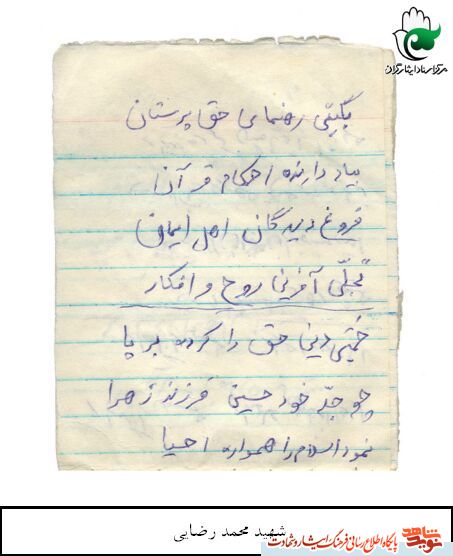 مرکز اسناد ایثارگران
بگیتی رهنمای حق پرستان
بپا دارنده احکام قرآن
فروغ دیدگان اهل ایمان
تجلّی آفرین روح و افکار
خمینی دین حق را کرده بر پا
چو جدّ خود حسین فرزند زهرا
نمود اسلام را همواره احیا
شهید محمد رضایی
نوید شاهد
پایگاه اطلاع رسانی فرهنگ ایثار و شهادت